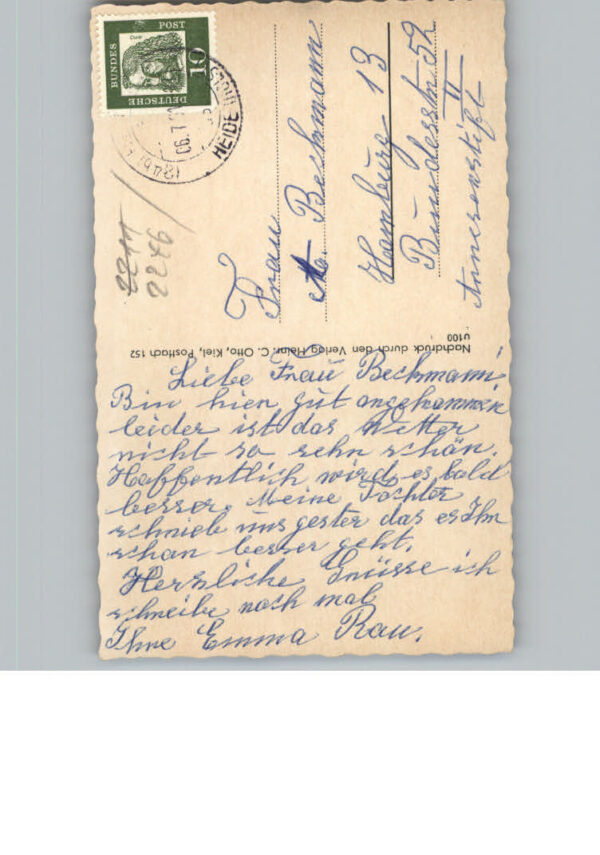 DEUTSCHE
BUNDES
POST
10
HEIDE
06.7
2211
2276
Frau
A. Bechmann
Hamburg 13
Bundesstr. 52
II
Nachdruck durch den Verlag Heinr. C. Otto, Kiel, Postfach 152
U100
Liebe Frau Bechmann
Bin hier gut angekommen
leider ist das Wetter
nicht so sehn schön.
Hoffentlich wird es bald
besser. Meine Tochter
schrieb uns gester das es Ihn
schon besser geht.
Herzliche Grüsse ich
schreibe noch mal
Ihre Emma Rau.